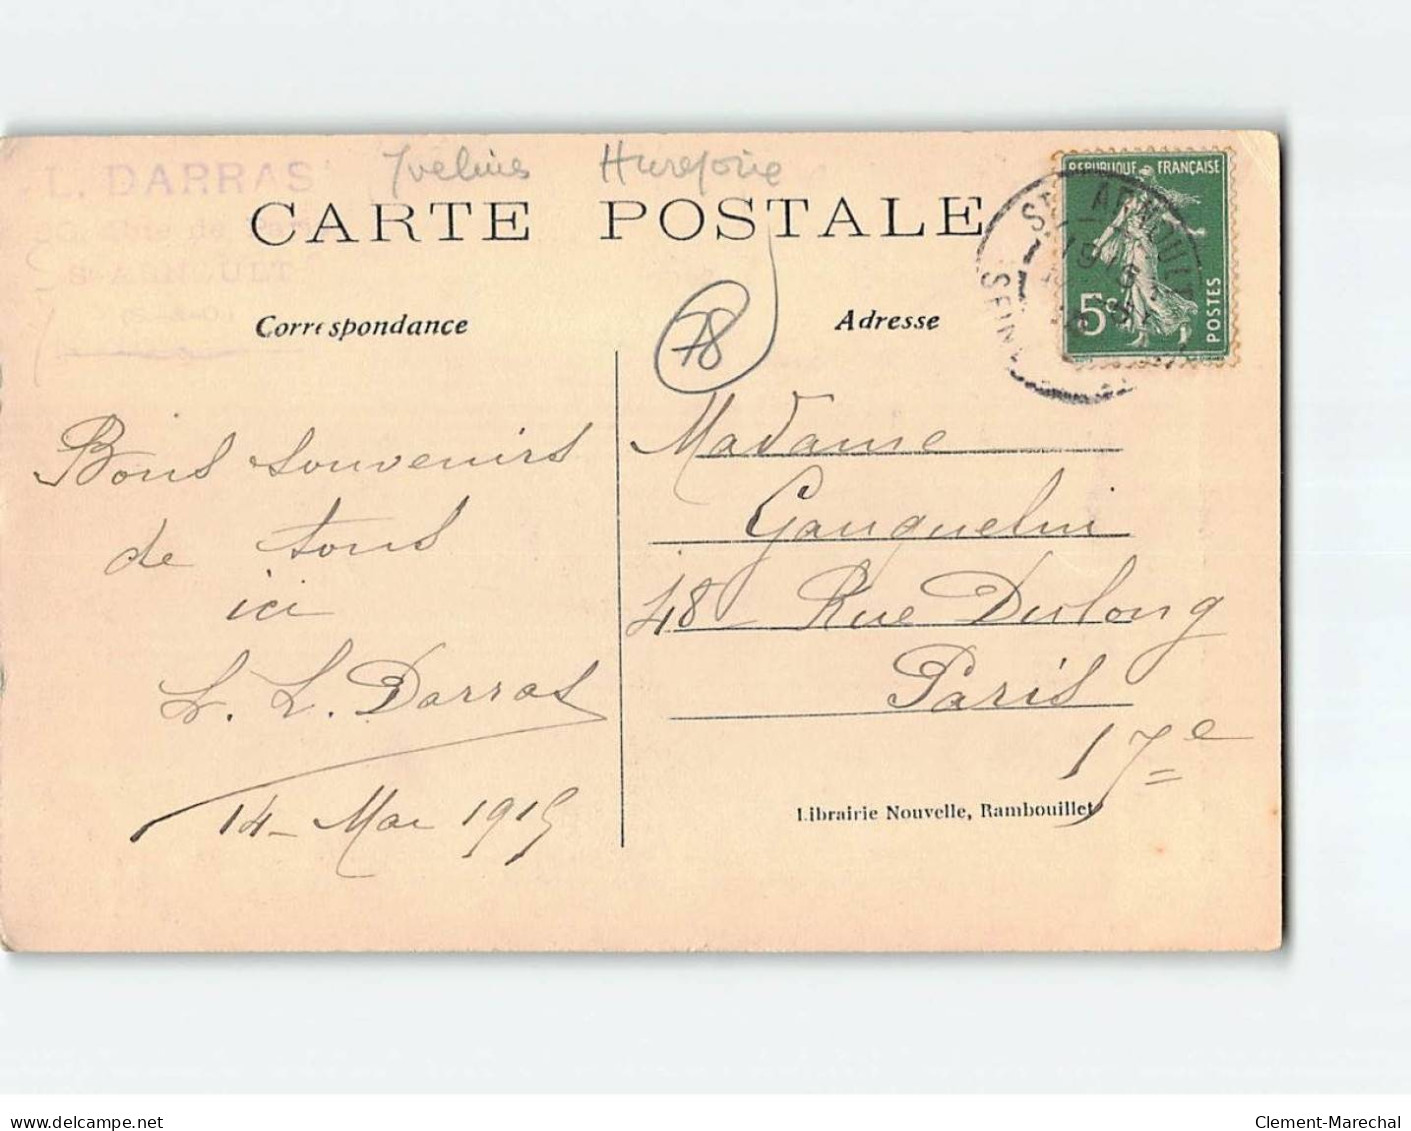 L. DARRAS
Yvelines Hurepoix
CARTE POSTALE
ST ARNOULT
Correspondance
Adresse
78
REPUBLIQUE FRANÇAISE
5c
POSTES
ST ARNOULT
Bons souvenirs
de tous
ici
L. L. Darras
14 - Mai 1915
Madame
Gauquelin
48 Rue Dulong
Paris
17e
Librairie Nouvelle, Rambouillet
delcampe.net
Clement-Marechal